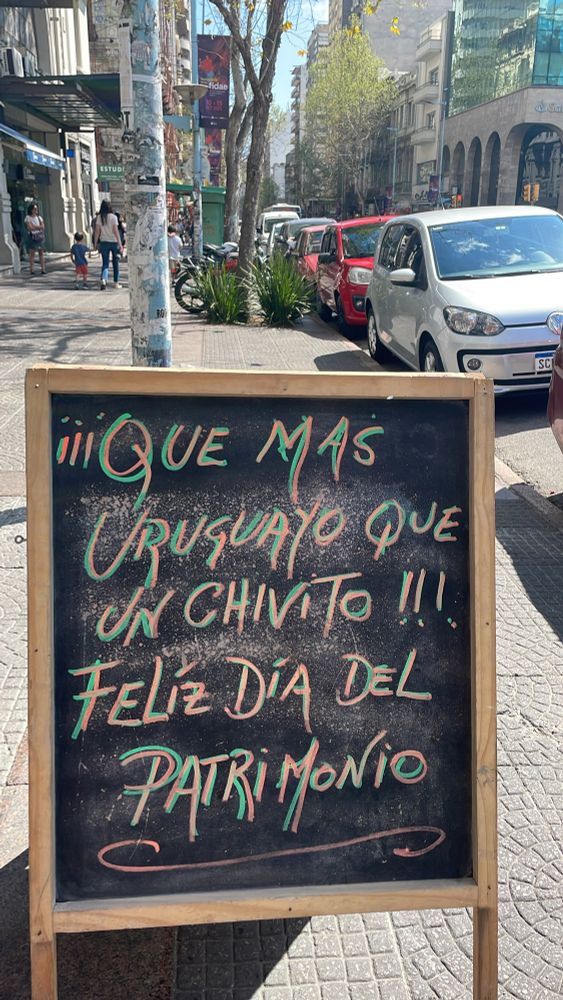 fidae
ESTUDI
¡¡¡QUE MAS
URUGUAYO QUE
UN CHIVITO !!!
FELÍZ DÍA DEL
PATRIMONIO